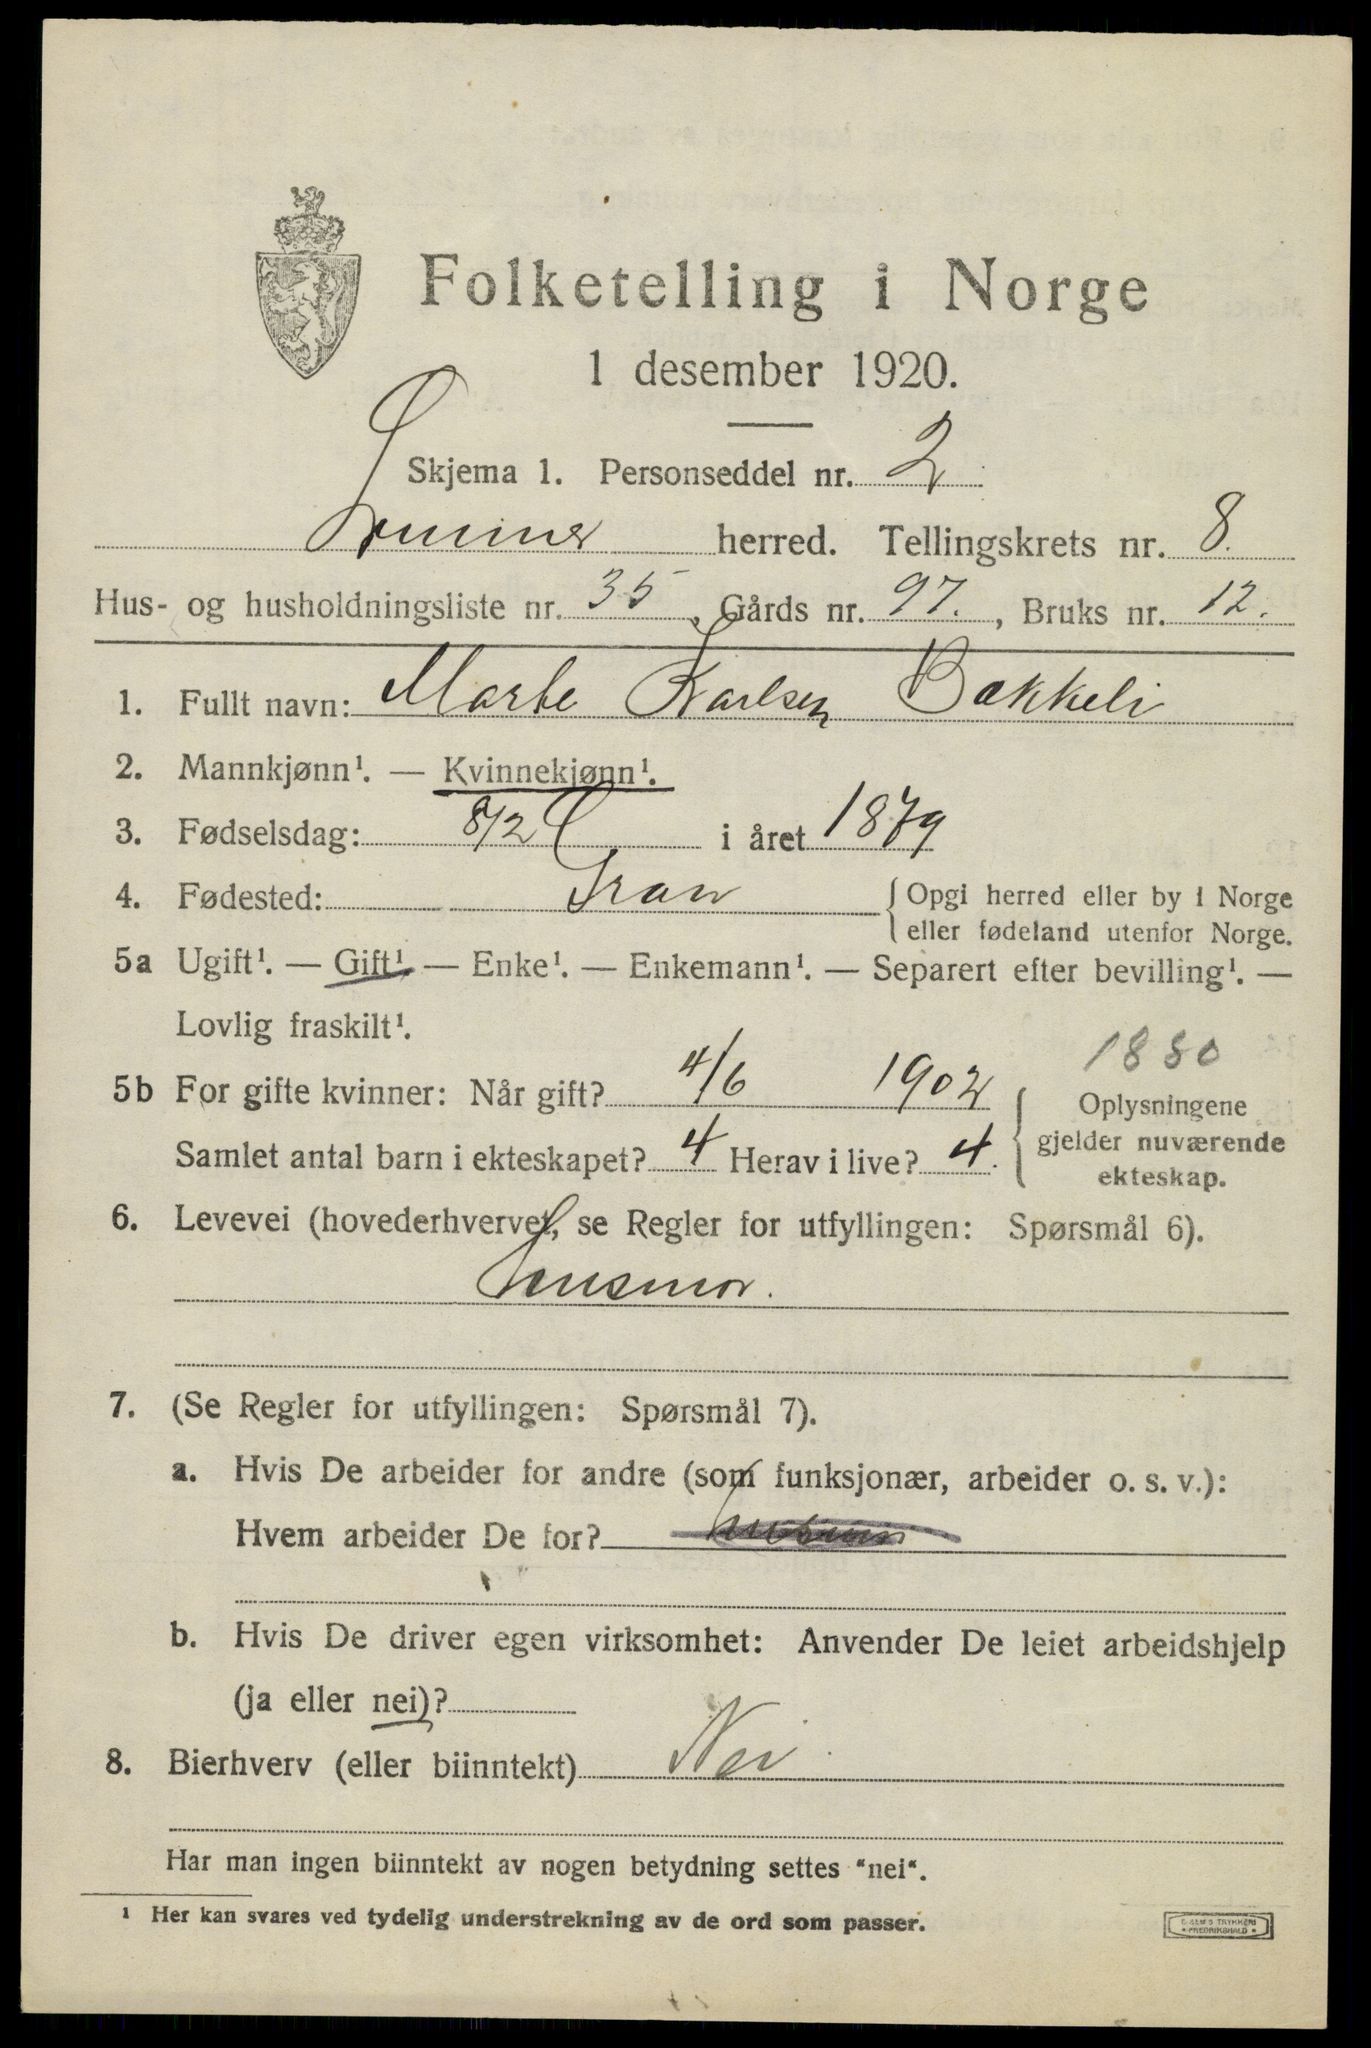 Folketelling i Norge
1 desember 1920.
Skjema 1. Personseddel nr. 2
Lunner herred. Tellingskrets nr. 8.
Hus- og husholdningsliste nr. 35, Gårds nr. 97., Bruks nr. 12.
1. Fullt navn: Marte Karlsen Bakkeli
2. Mannkjønn¹. — Kvinnekjønn¹.
3. Fødselsdag: 8/2 i året 1879
4. Fødested: Gran { Opgi herred eller by i Norge
eller fødeland utenfor Norge.
5a Ugift¹. — Gift¹. — Enke¹. — Enkemann¹. — Separert efter bevilling¹. —
Lovlig fraskilt¹.
1880
5b For gifte kvinner: Når gift? 4/6 1902
Samlet antal barn i ekteskapet? 4 Herav i live? 4.
Oplysningene
gjelder nuværende
ekteskap.
6. Levevei (hovederhvervet, se Regler for utfyllingen: Spørsmål 6).
Husmor.
7. (Se Regler for utfyllingen: Spørsmål 7).
a. Hvis De arbeider for andre (som funksjonær, arbeider o. s. v.):
Hvem arbeider De for?
b. Hvis De driver egen virksomhet: Anvender De leiet arbeidshjelp
(ja eller nei)?
8. Bierhverv (eller biinntekt) Nei.
Har man ingen biinntekt av nogen betydning settes "nei".
¹ Her kan svares ved tydelig understrekning av de ord som passer.
TRYKKERI
FREDRIKSHALD